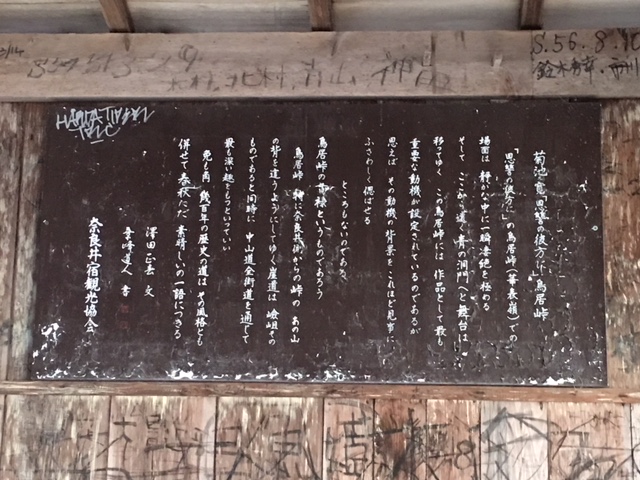 S.56.8.10
鈴木
菊池寛「恩讐の彼方に」鳥居峠
「恩讐の彼方に」の鳥居峠(華表嶺)での
場面は 静かな中に一瞬凄絶を極める
そして ここから遠く青の洞門へと舞台は
移ってゆく この鳥居峠には 作品として最も
重要な動機が設定されているのであるが
思えば その動機、背景をこれほど見事に
ふさわしく偲ばせる
ところもないのである、
鳥居峠の貫禄というものであろう
鳥居峠 特に奈良井宿からの峠の あの山
の背を這うようにしてゆく崖道は 嶮岨その
ものであると同時に 中山道全街道を通して
最も深い趣をもつといってよい
兎も角 幾百年の歴史の道は その風格とも
併せて 春秋ただ 素晴しいの一語につきる
澤田正春 文
書
奈良井宿観光協会